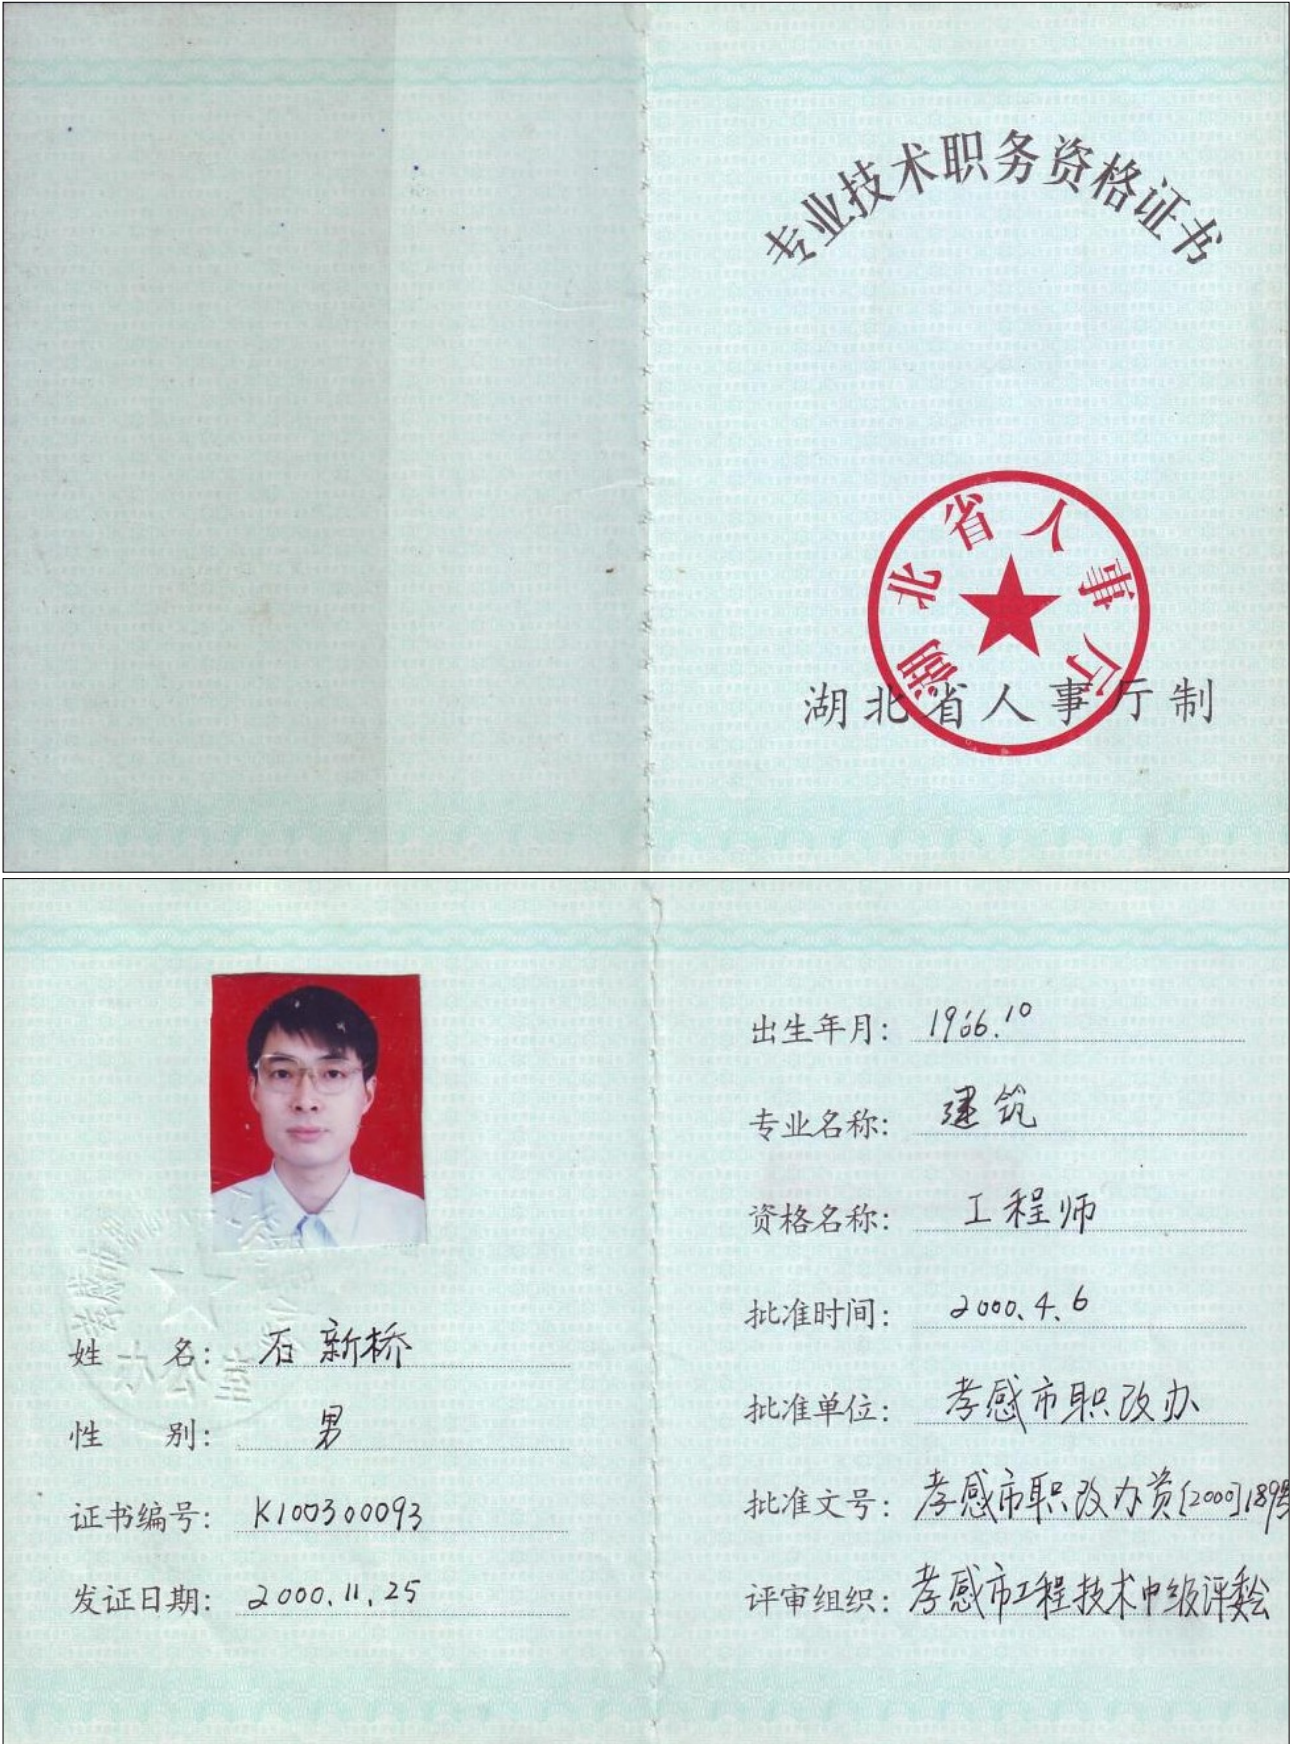 专业技术职务资格证书
湖北省人事厅
湖北省人事厅制
姓 名: 石新桥
性 别: 男
证书编号: K100300093
发证日期: 2000.11.25
出生年月: 1966.10
专业名称: 建筑
资格名称: 工程师
批准时间: 2000.4.6
批准单位: 孝感市职改办
批准文号: 孝感市职改办资[2000]189号
评审组织: 孝感市工程技术中级评委会